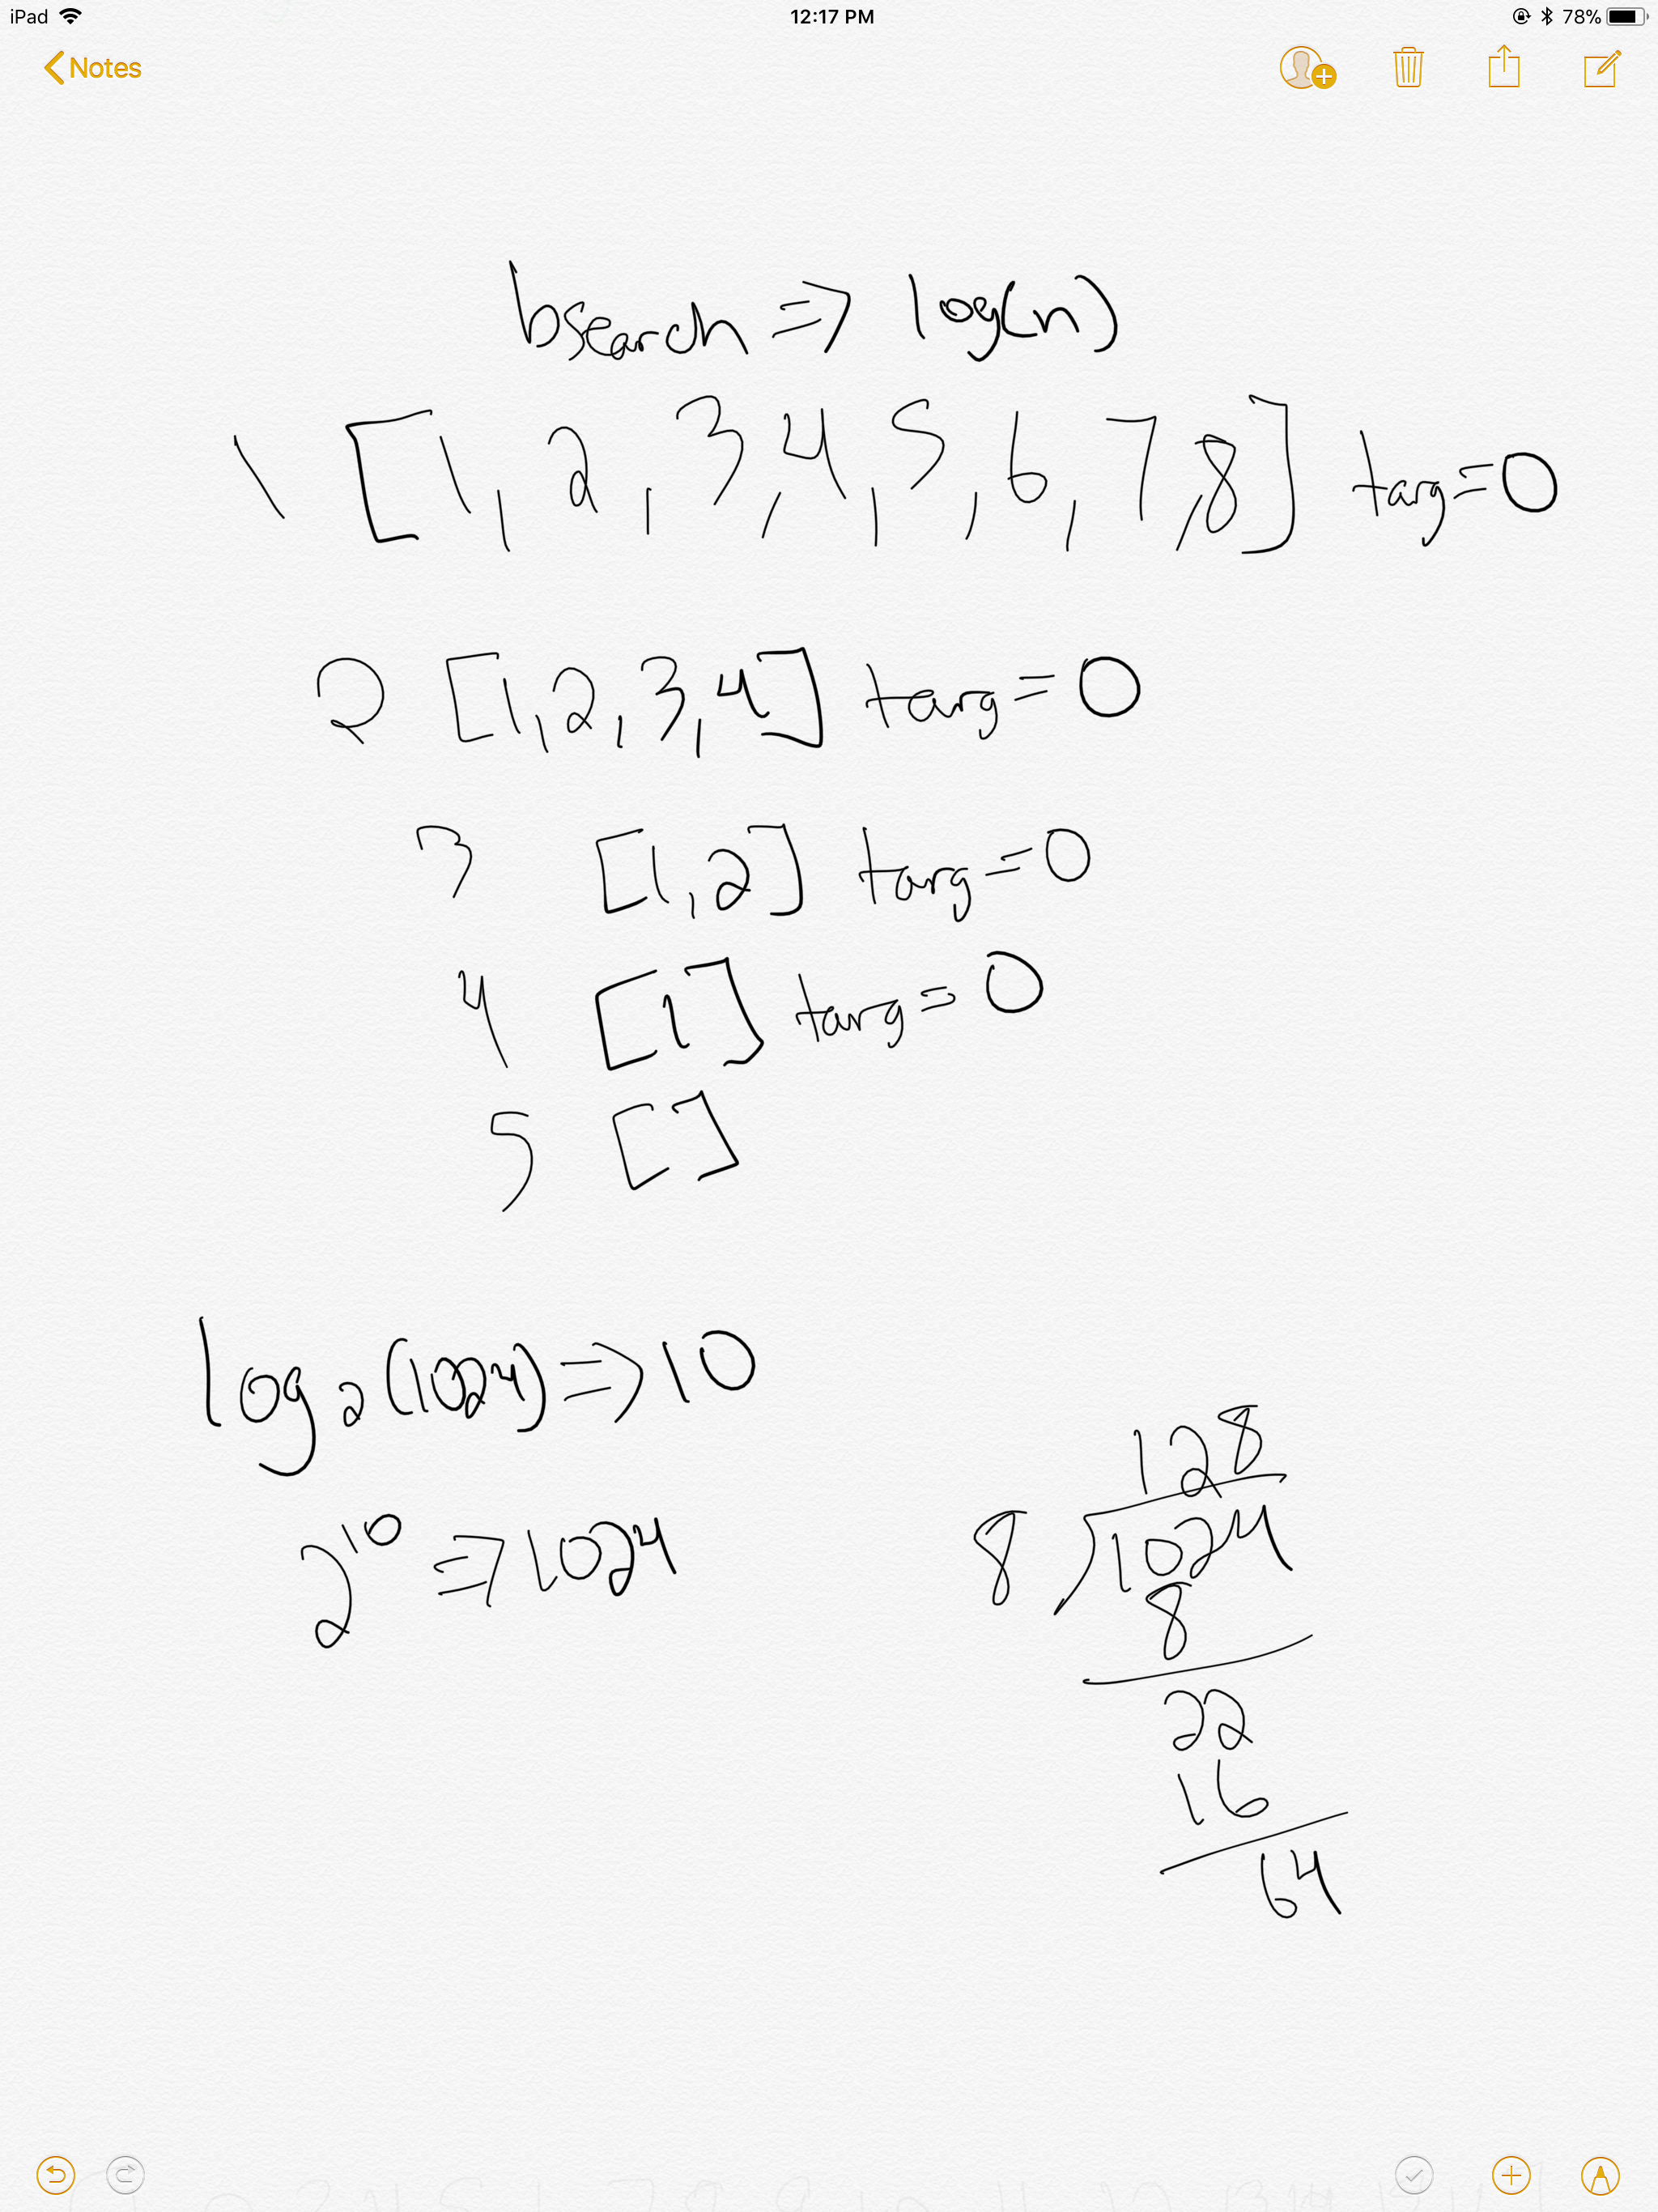 iPad 12:17 PM 78%
Notes
bsearch => log(n)
1 [1, 2, 3, 4, 5, 6, 7, 8] targ=0
2 [1, 2, 3, 4] targ=0
3 [1, 2] targ=0
4 [1] targ=0
5 []
log₂(1024) => 10
2¹⁰ => 1024
128
8 1024
8
22
16
64